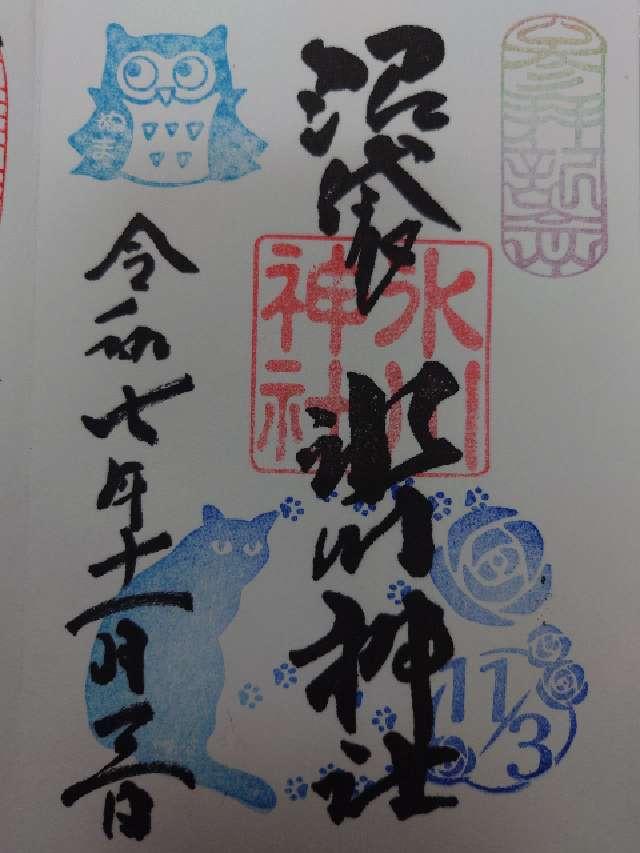 参拝記念
沼袋 氷川神社
氷川
神社
ぬま
令和七年十一月三日
11/3